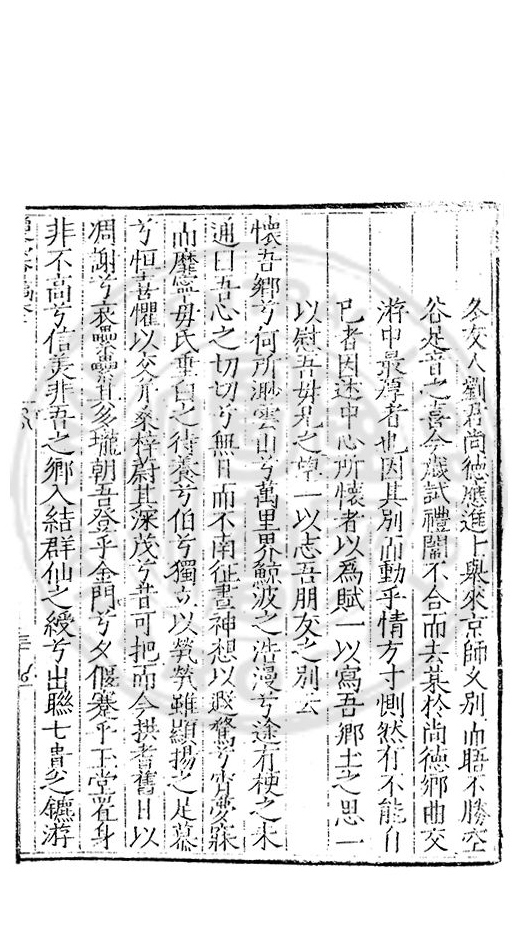 冬友人劉君尚德應進士舉來京師久別而晤不勝空
谷足音之喜今歲試禮闈不合而去某於尚德鄉曲交
游中最厚者也因其別而動乎情方寸惻然有不能自
已者因述中心所懷者以為賦一以寫吾鄉土之思一
以慰吾母兄之望一以志吾朋友之別云
懷吾鄉兮何所渺雲山兮萬里界鯨波之浩漫兮途有梗之未
通曰吾心之切切兮無日而不南征晝神想以遐騖兮宵夢寐
而靡寧毋氏垂白之待養兮伯兮獨立以煢煢雖顯揚之足慕
兮恒喜懼以交并桑梓蔚其深茂兮昔可把而今拱耆舊日以
凋謝兮哀壘壘其多壠朝吾登乎金門兮夕偃蹇乎玉堂置身
非不高兮信美非吾之鄉入結群仙之綬兮出聯七貴之鑣游